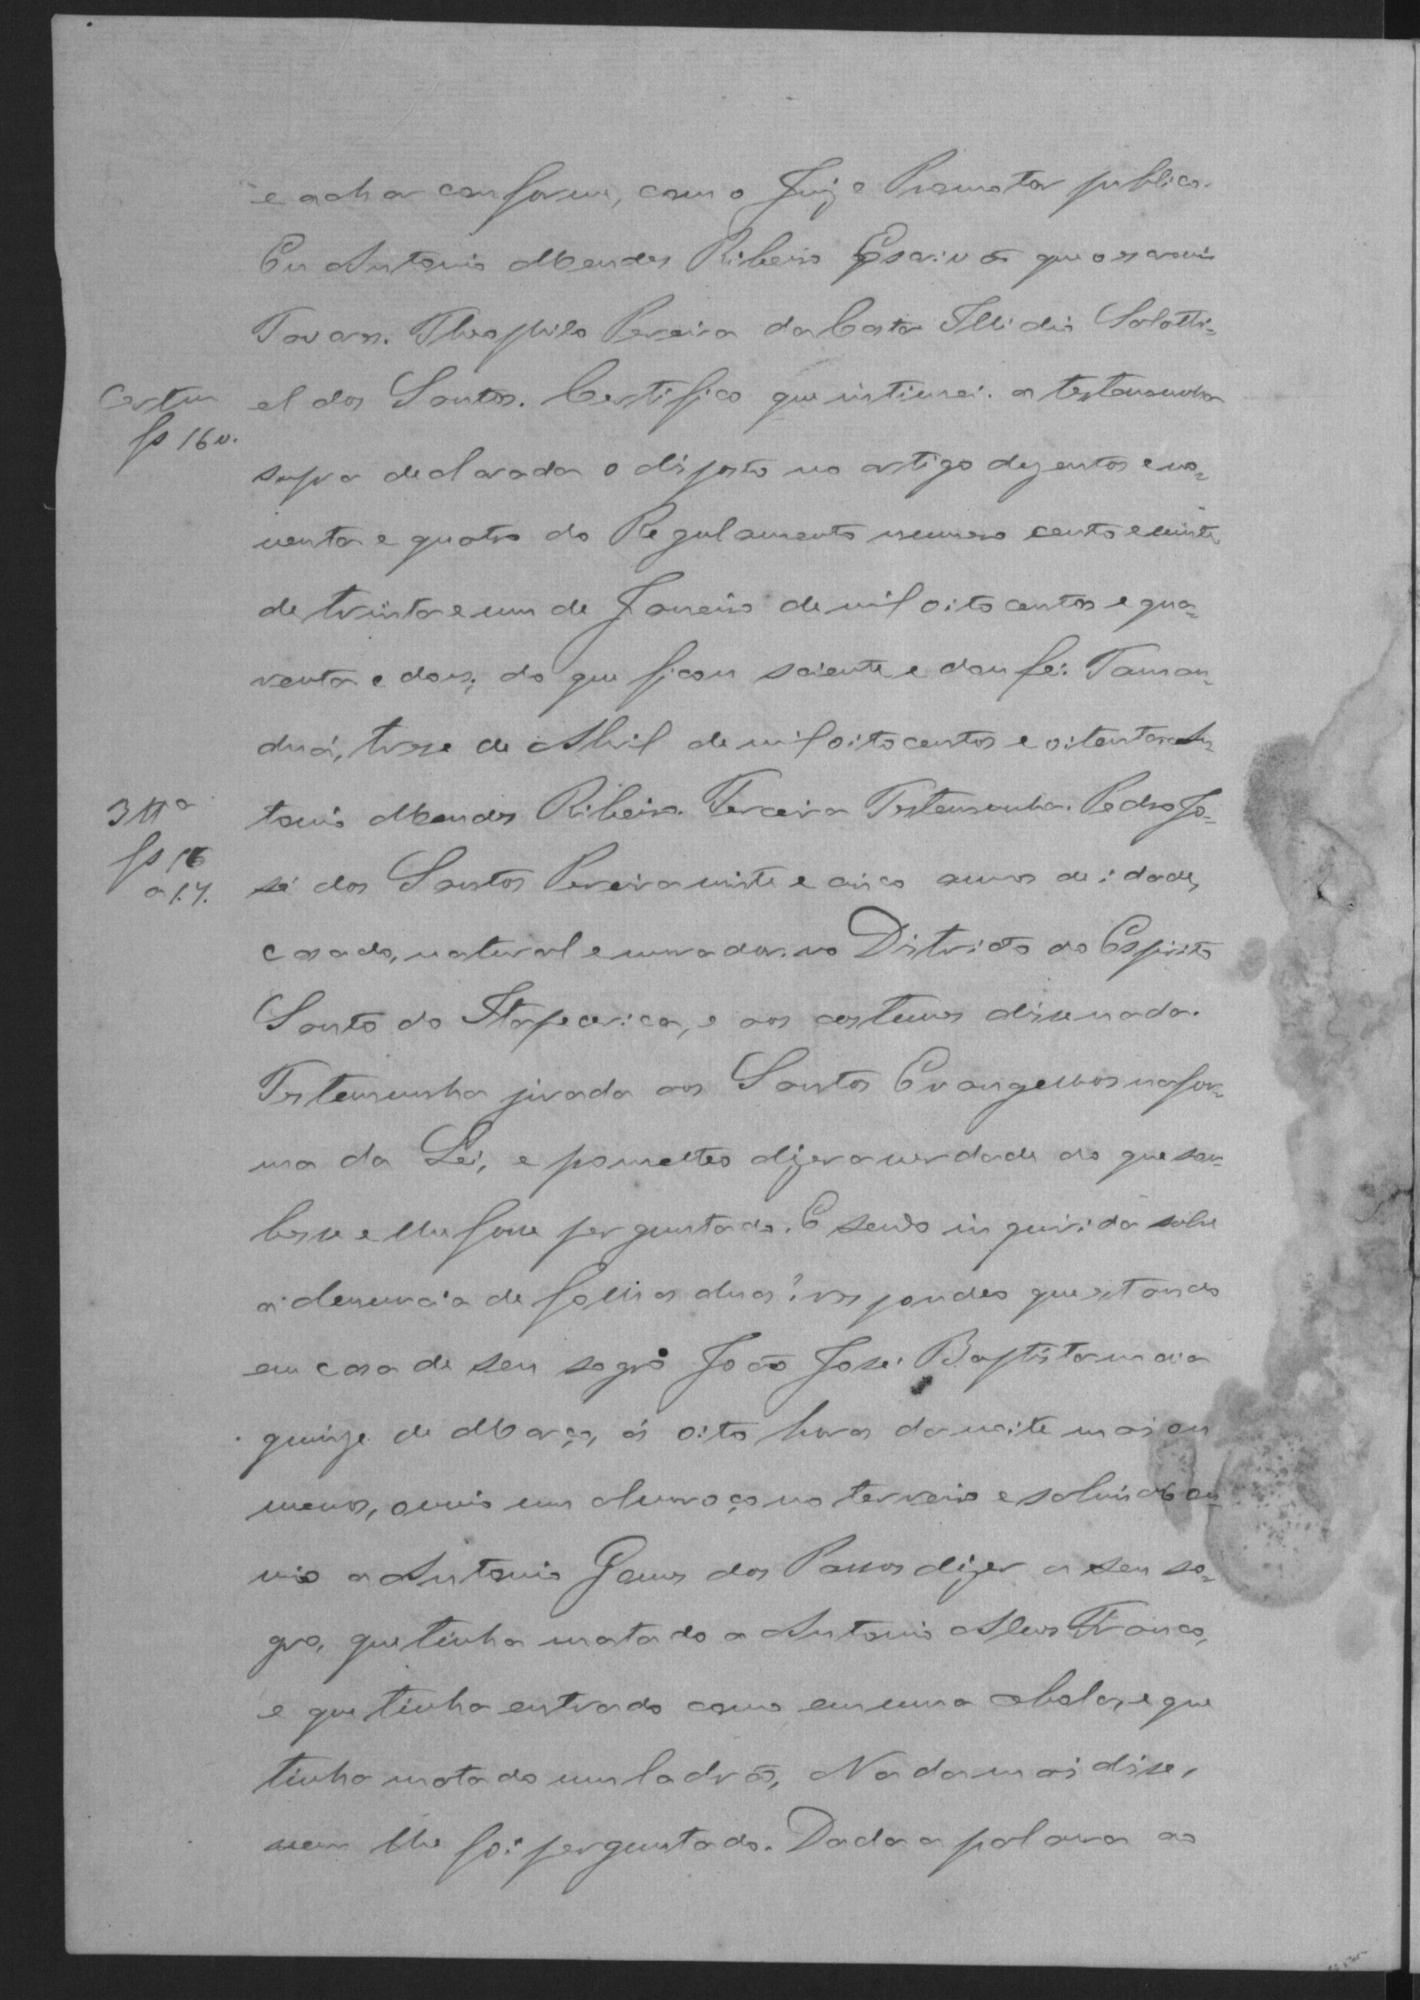 e achar conforme, com o Juiz e Promotor publico.
Eu Antonio Mendes Ribeiro Escrivão que o escrevi
Tavares. Theophilo Pereira da Costa Illidio Salatti-
el dos Santos. Certifico que intimei a testemunha
Certam
fs 16 v.
supra declarada o disposto no artigo dezentos e no-
venta e quatro do Regulamento numero cento e vinte
de trinta e um de Janeiro de mil oito centos e qua-
renta e dous; do que ficou sciente e dou fé: Taman-
duá, trese de Abril de mil oito centos e oitenta An-
tonio Mendes Ribeiro. Terceira Testemunha. Pedro Jo-
3 ttª
fs 16
a 17.
sé dos Santos Pereira vinte e cinco annos de idade,
casado, natural e morador no Districto do Espirito
Santo do Itapecerica, e aos costumes disse nada.
Testemunha jurada aos Santos Evangelhos na for-
ma da Lei, e prometteo dizer a verdade do que sou-
besse e lhe fosse perguntado. E sendo inquirida sobre
a denuncia de folhas duas? respondeo que estando
em casa de seu sogro João José Baptista no dia
quinze de Março, ás oito horas da noite mais ou
menos, ouvio um alvoroço no terreiro e sahindo ou-
vio a Antonio Gomes dos Passos dizer a seu so-
gro, que tinha matado a Antonio Alves Franco,
e que tinha entrado como em uma abelas, e que
tinha matado um ladrão, Nada mais disse,
nem lhe foi perguntado. Dada a palavra ao